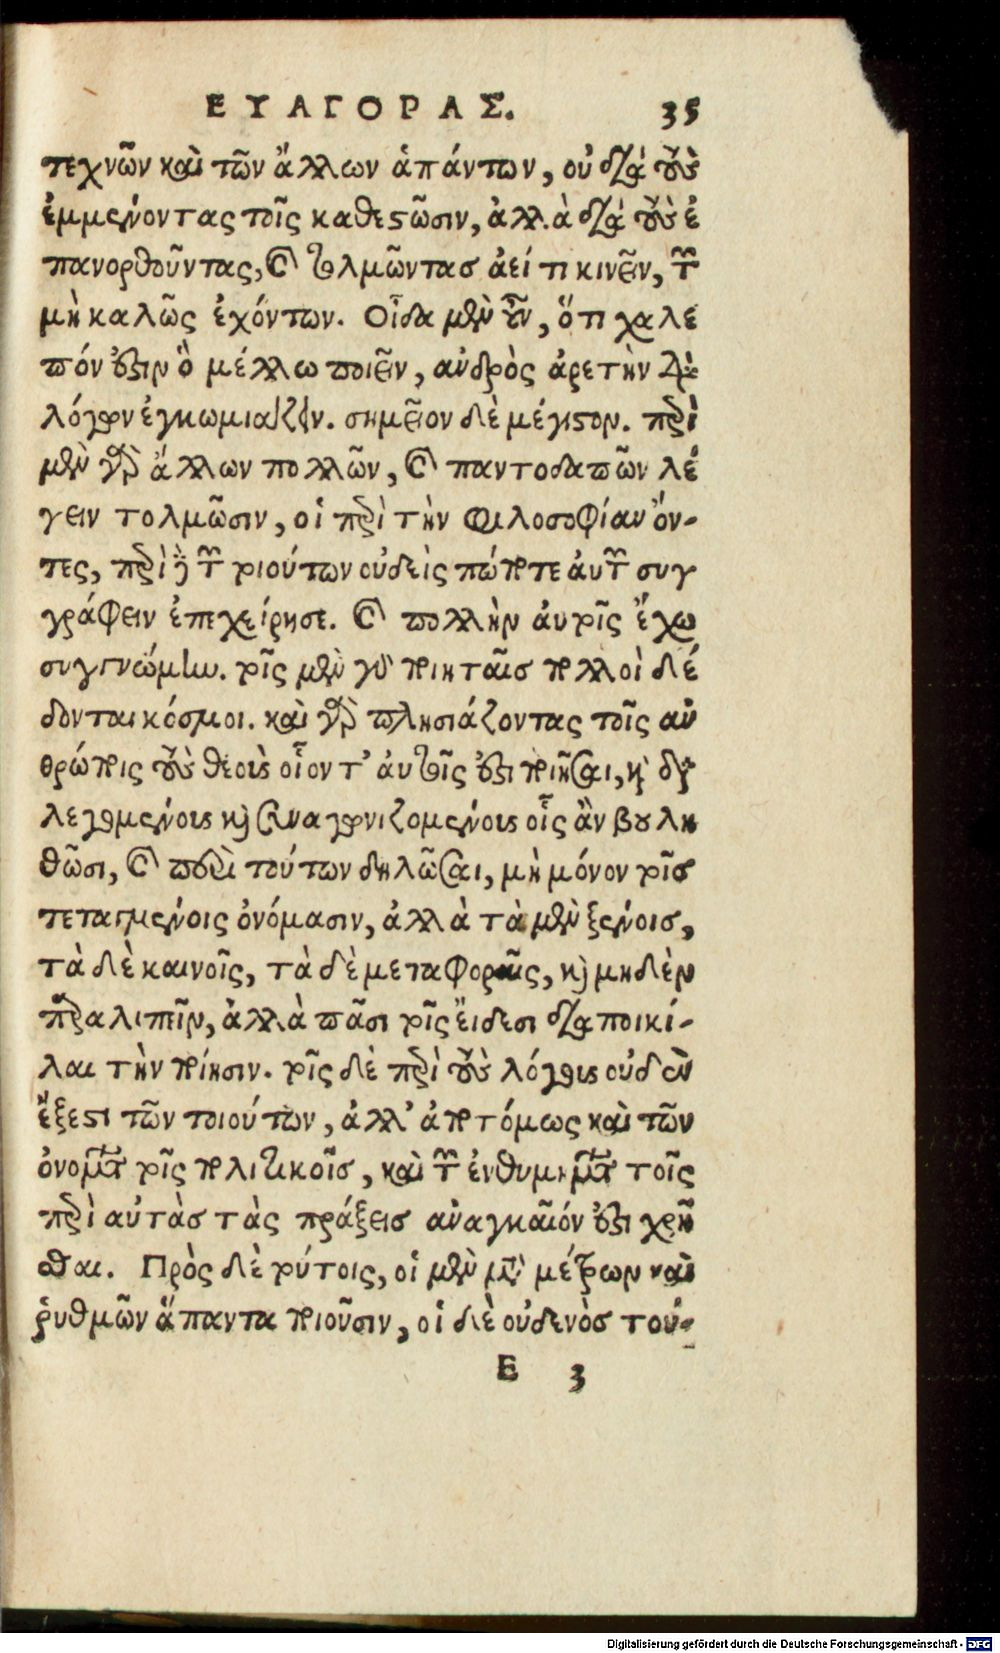 ΕΥΑΓΟΡΑΣ. 35
τεχνῶν καὶ τῶν ἄλλων ἁπάντων, οὐ διὰ τοὺς
ἐμμένοντας τοῖς καθεστῶσιν, ἀλλὰ διὰ τοὺς ἐ
πανορθοῦντας, καὶ τολμῶντας ἀεί τι κινεῖν, τῶν
μὴ καλῶς ἐχόντων. Οἶδα μὲν οὖν, ὅτι χαλε
πόν ἐστιν ὃ μέλλω ποιεῖν, ἀνδρὸς ἀρετὴν διὰ
λόγων ἐγκωμιάζειν. σημεῖον δὲ μέγιστον. περὶ
μὲν γὰρ ἄλλων πολλῶν, καὶ παντοδαπῶν λέ
γειν τολμῶσιν, οἱ περὶ τὴν φιλοσοφίαν ὄν-
τες, περὶ δὲ τῶν τοιούτων οὐδεὶς πώποτε αὐτῶν συγ
γράφειν ἐπεχείρησε. καὶ πολλὴν αὐτοῖς ἔχω
συγγνώμην. τοῖς μὲν γὰρ ποιηταῖς πολλοὶ δέ
δονται κόσμοι. καὶ γὰρ πλησιάζοντας τοῖς ἀν
θρώποις τοὺς θεοὺς οἷον τ' αὐτοῖς ἐστι ποιῆσαι, καὶ δια
λεγομένους καὶ συναγωνιζομένους οἷς ἂν βουλη
θῶσι, καὶ περὶ τούτων δηλῶσαι, μὴ μόνον τοῖς
τεταγμένοις ὀνόμασιν, ἀλλὰ τὰ μὲν ξένοις,
τὰ δὲ καινοῖς, τὰ δὲ μεταφοραῖς, καὶ μηδὲν
παραλιπεῖν, ἀλλὰ πᾶσι τοῖς εἴδεσι διαποικί-
λαι τὴν ποίησιν. τοῖς δὲ περὶ τοὺς λόγους οὐδὲν
ἔξεστι τῶν τοιούτων, ἀλλ' ἀποτόμως καὶ τῶν
ὀνομάτων τοῖς πολιτικοῖς, καὶ τῶν ἐνθυμημάτων τοῖς
περὶ αὐτὰς τὰς πράξεις ἀναγκαῖόν ἐστι χρῆ
σθαι. Πρὸς δὲ τούτοις, οἱ μὲν μετὰ μέτρων καὶ
ῥυθμῶν ἅπαντα ποιοῦσιν, οἱ δὲ οὐδενὸς τού-
E 3
Digitalisierung gefördert durch die Deutsche Forschungsgemeinschaft - DFG